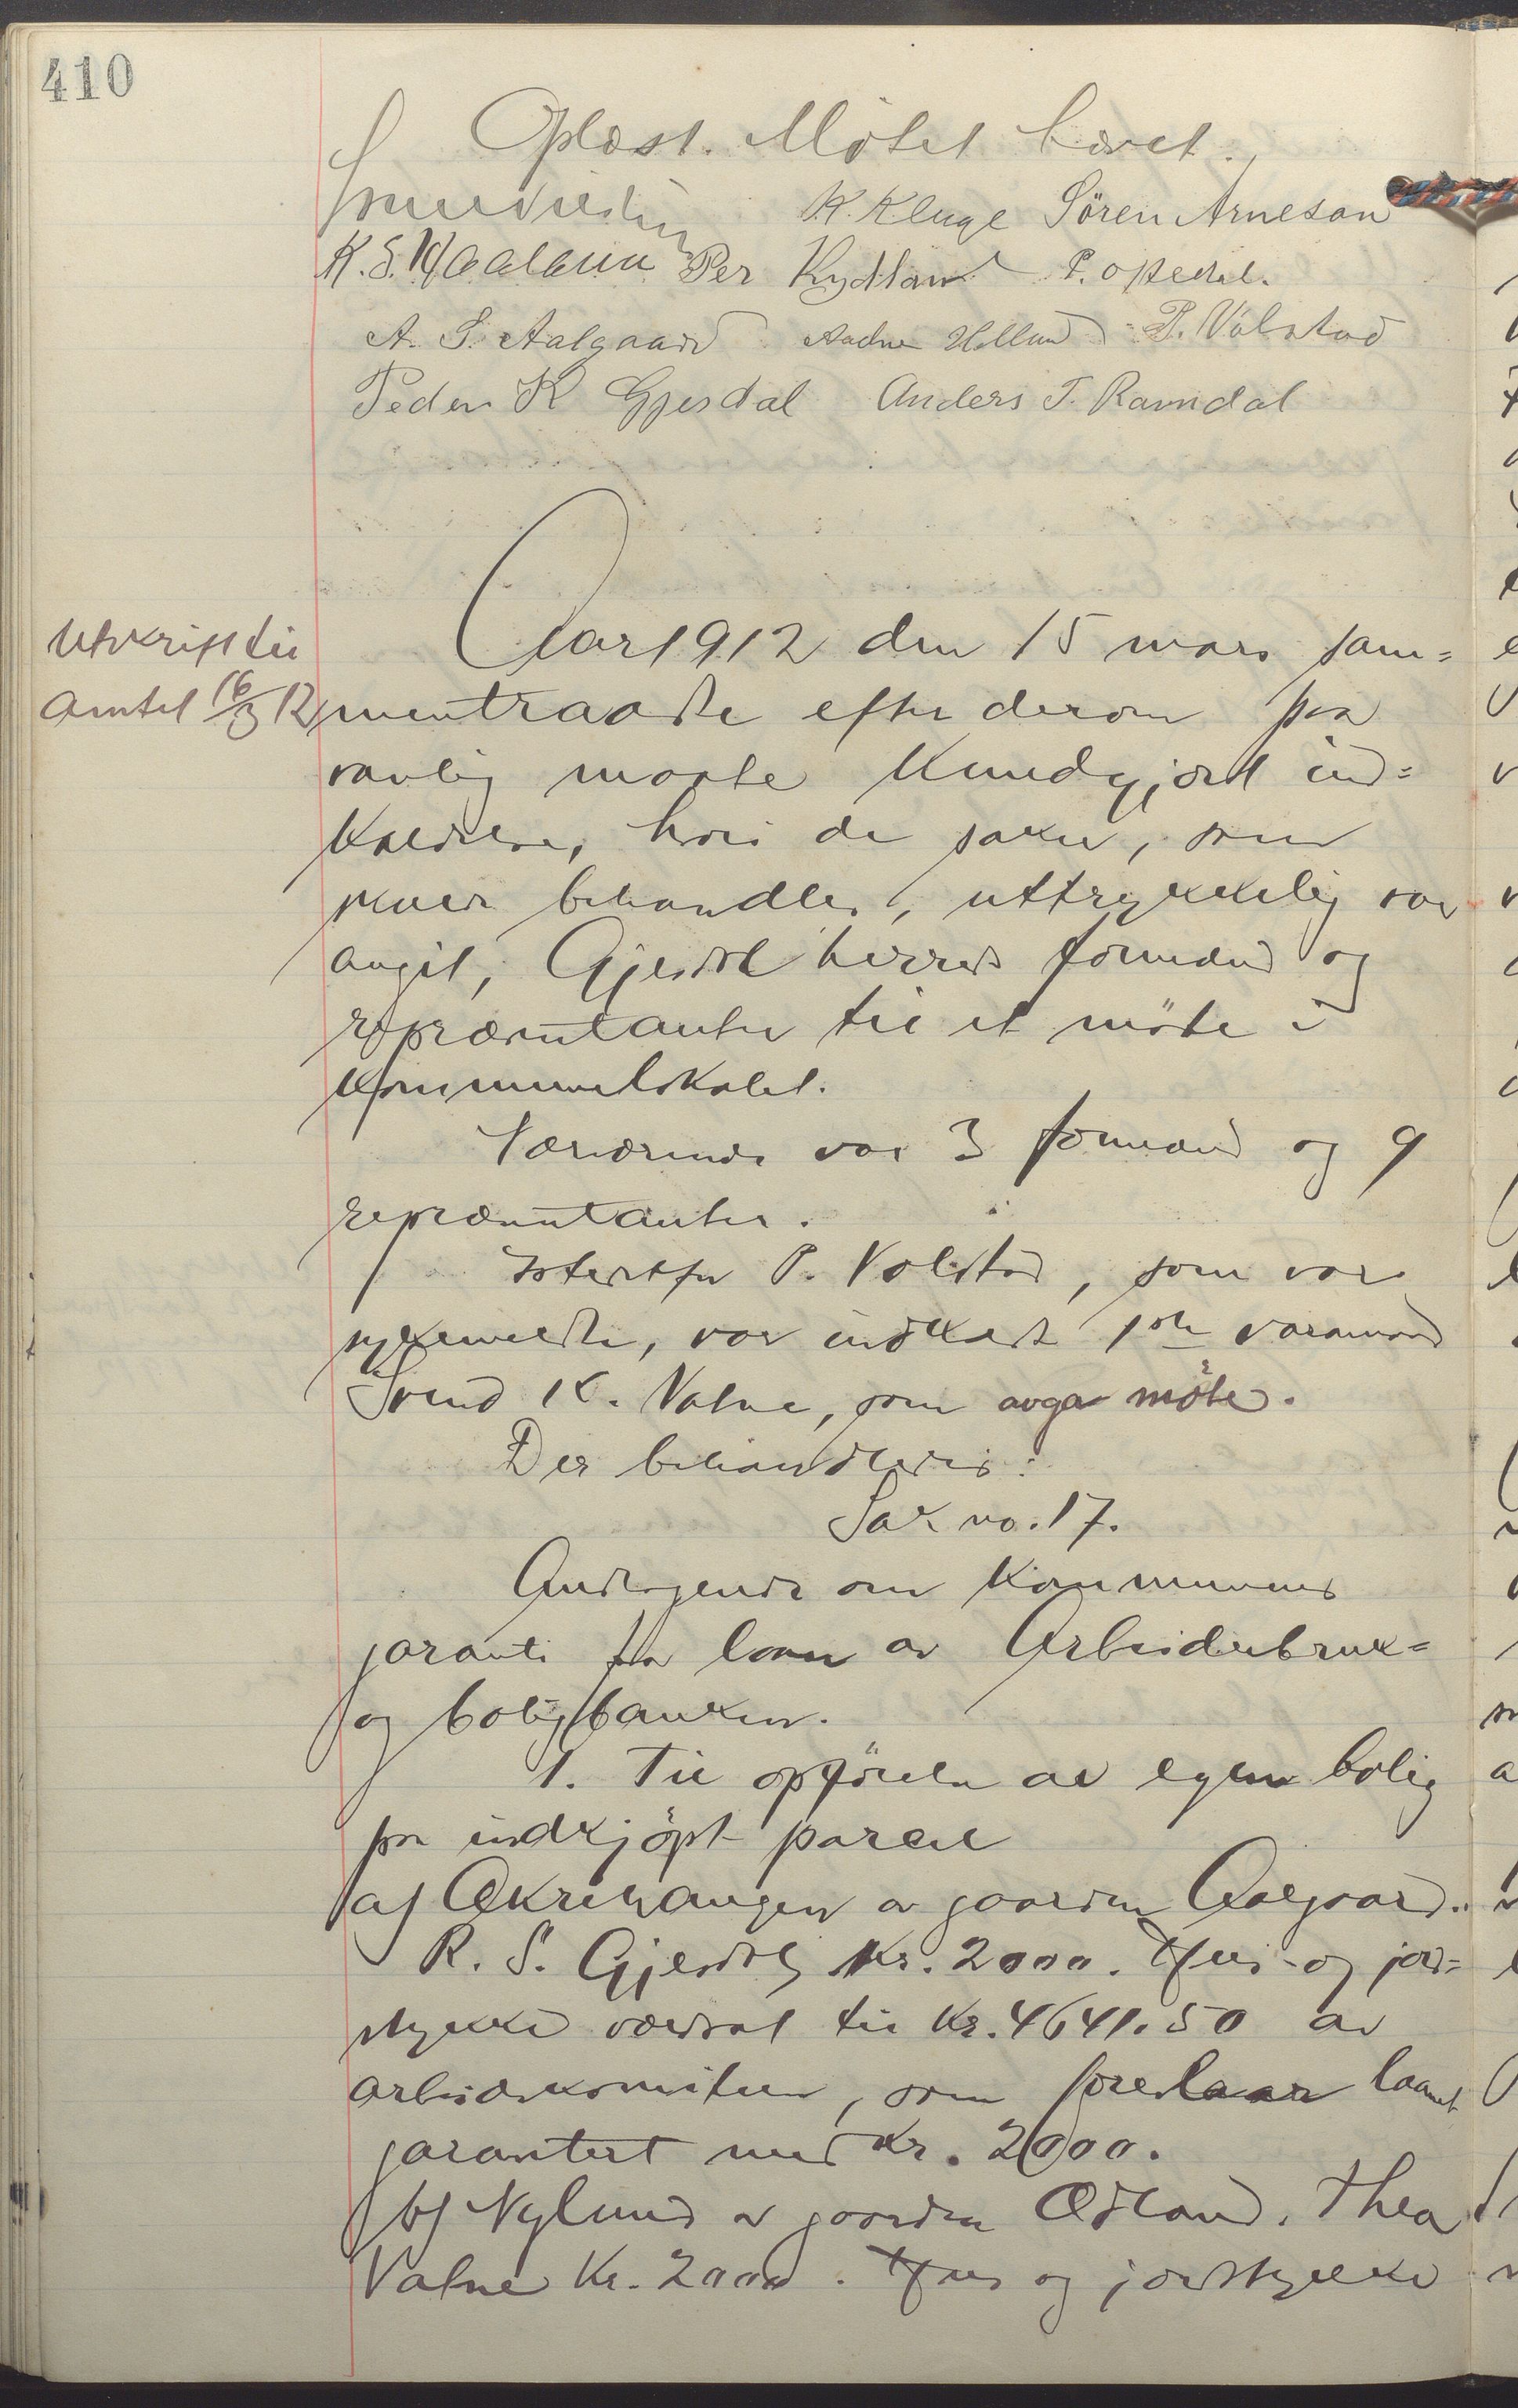 410
Oplæst. Møtet hævet.
K. Kluge Sören Arneson
K. S. Haaland Per Kydland P. Opedal.
A. S. Aalgaard Aadne P. Volstad
Peder K Gjesdal Anders T. Ravndal
Utskrift til
amtet 16/3 12
Aar 1912 den 15 mars sam=
mentraadte efter derom paa
vanlig maate kundgjort ind=
kaldelse, hvori de saker, som
skulde behandles, uttrykkelig var
angit, Gjesdal herreds formænd og
repræsentanter til et möte i
kommunelokalet.
Nærværende var 3 formænd og 9
repræsentanter.
Istedetfor P. Volstad, som var
sykemeldt, var indkaldt 1ste varamand
Svend K. Valne, som avga möte.
Der behandledes:
Sak no. 17.
Andragende om kommunens
garanti for laan av Arbeiderbruk=
og boligbanken.
1. Til opförelse av egen bolig
paa indkjöpt parcel
a) Ækrehaugen av gaarden Aalgaard.
R. S. Gjesdal, Kr. 2000. Hus- og jord=
stykke værdsat til Kr. 4641.50 av
arbeidskomiteen, som foreslaar laanet
garantert med Kr. 2000.
b) Nylund av gaarden Ødland. Thea
Valne Kr. 2000. Hus og jordstykke